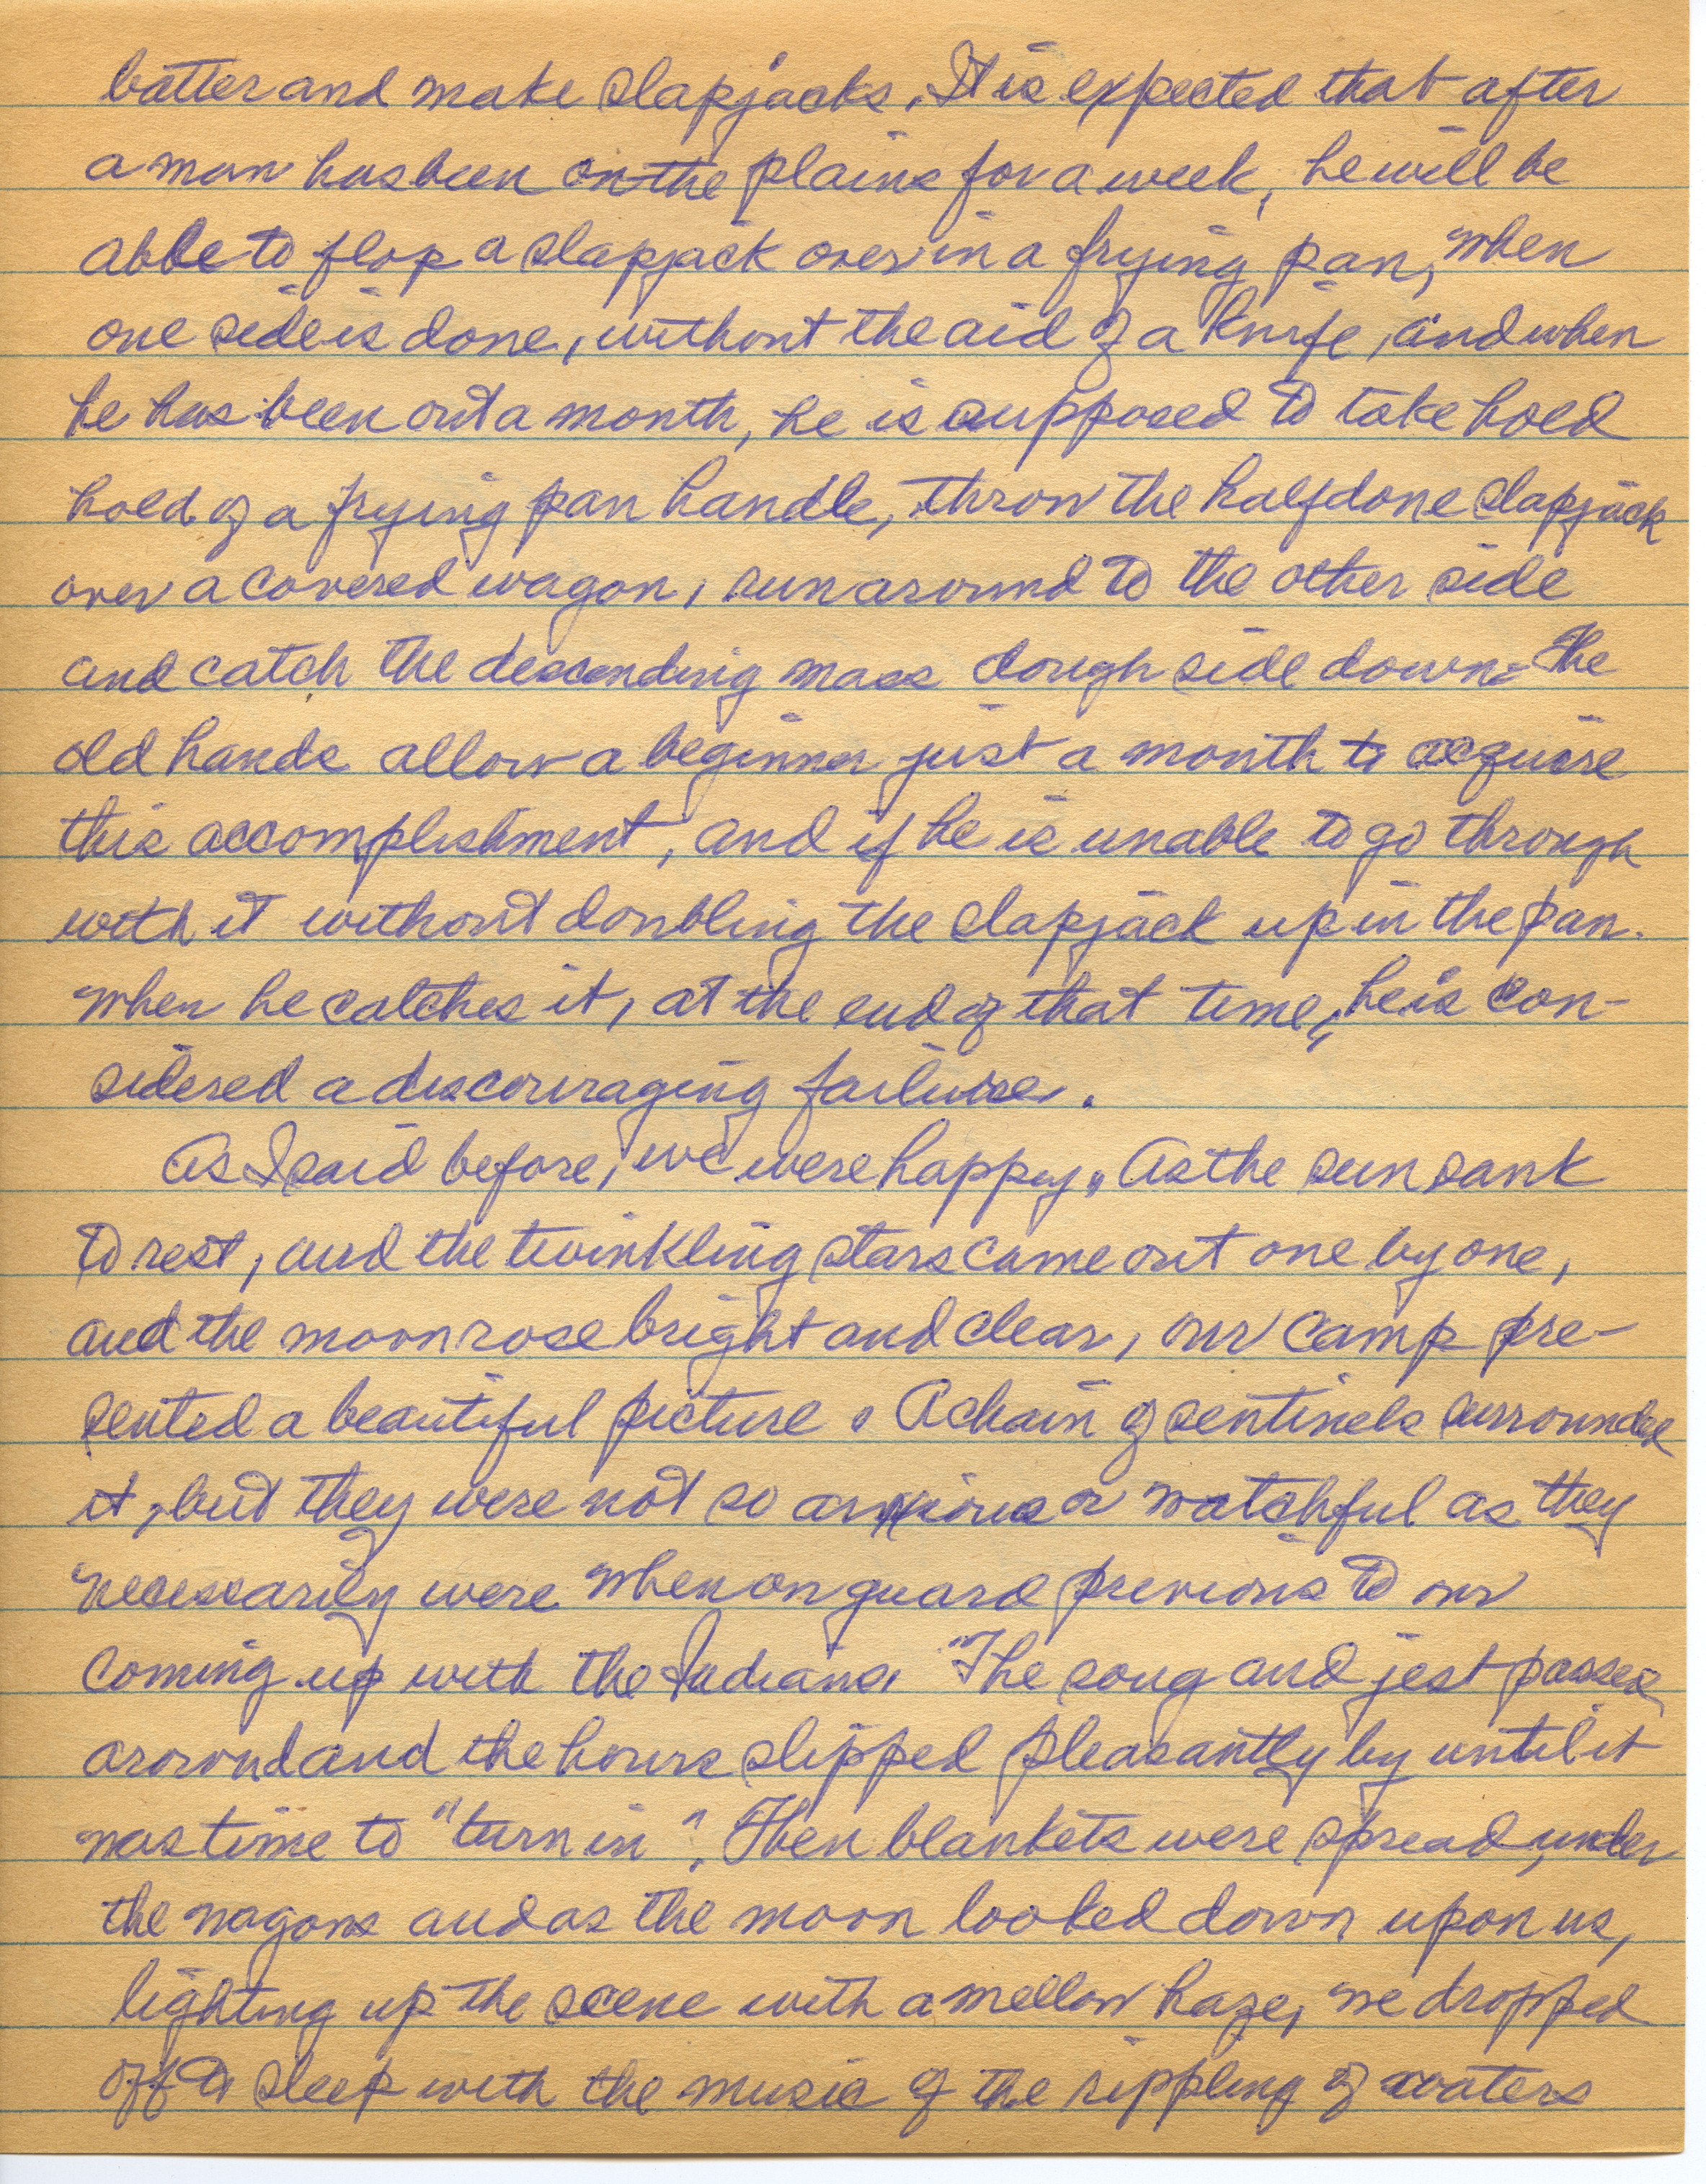 batter and make slapjacks. It is expected that after
a man has been on the plains for a week, he will be
able to flop a slapjack over in a frying pan, when
one side is done, without the aid of a knife, and when
he has been out a month, he is supposed to take hold
hold of a frying pan handle, throw the half done slapjack
over a covered wagon, run around to the other side
and catch the descending mass dough side down. The
old hands allow a beginner just a month to acquire
this accomplishment, and if he is unable to go through
with it without doubling the slapjack up in the pan.
when he catches it, at the end of that time, he is con-
sidered a discouraging failure.
As I said before, we were happy. As the sun sank
to rest, and the twinkling stars came out one by one,
and the moon rose bright and clear, our camp pre-
sented a beautiful picture. A chain of sentinels surrounded
it, but they were not so anxious or watchful as they
necessarily were when on guard previous to our
coming up with the Indians. The song and jest passed
around and the hours slipped pleasantly by until it
was time to "turn in". Then blankets were spread under
the wagons and as the moon looked down upon us,
lighting up the scene with a mellow haze, we dropped
off to sleep with the music of the rippling of waters